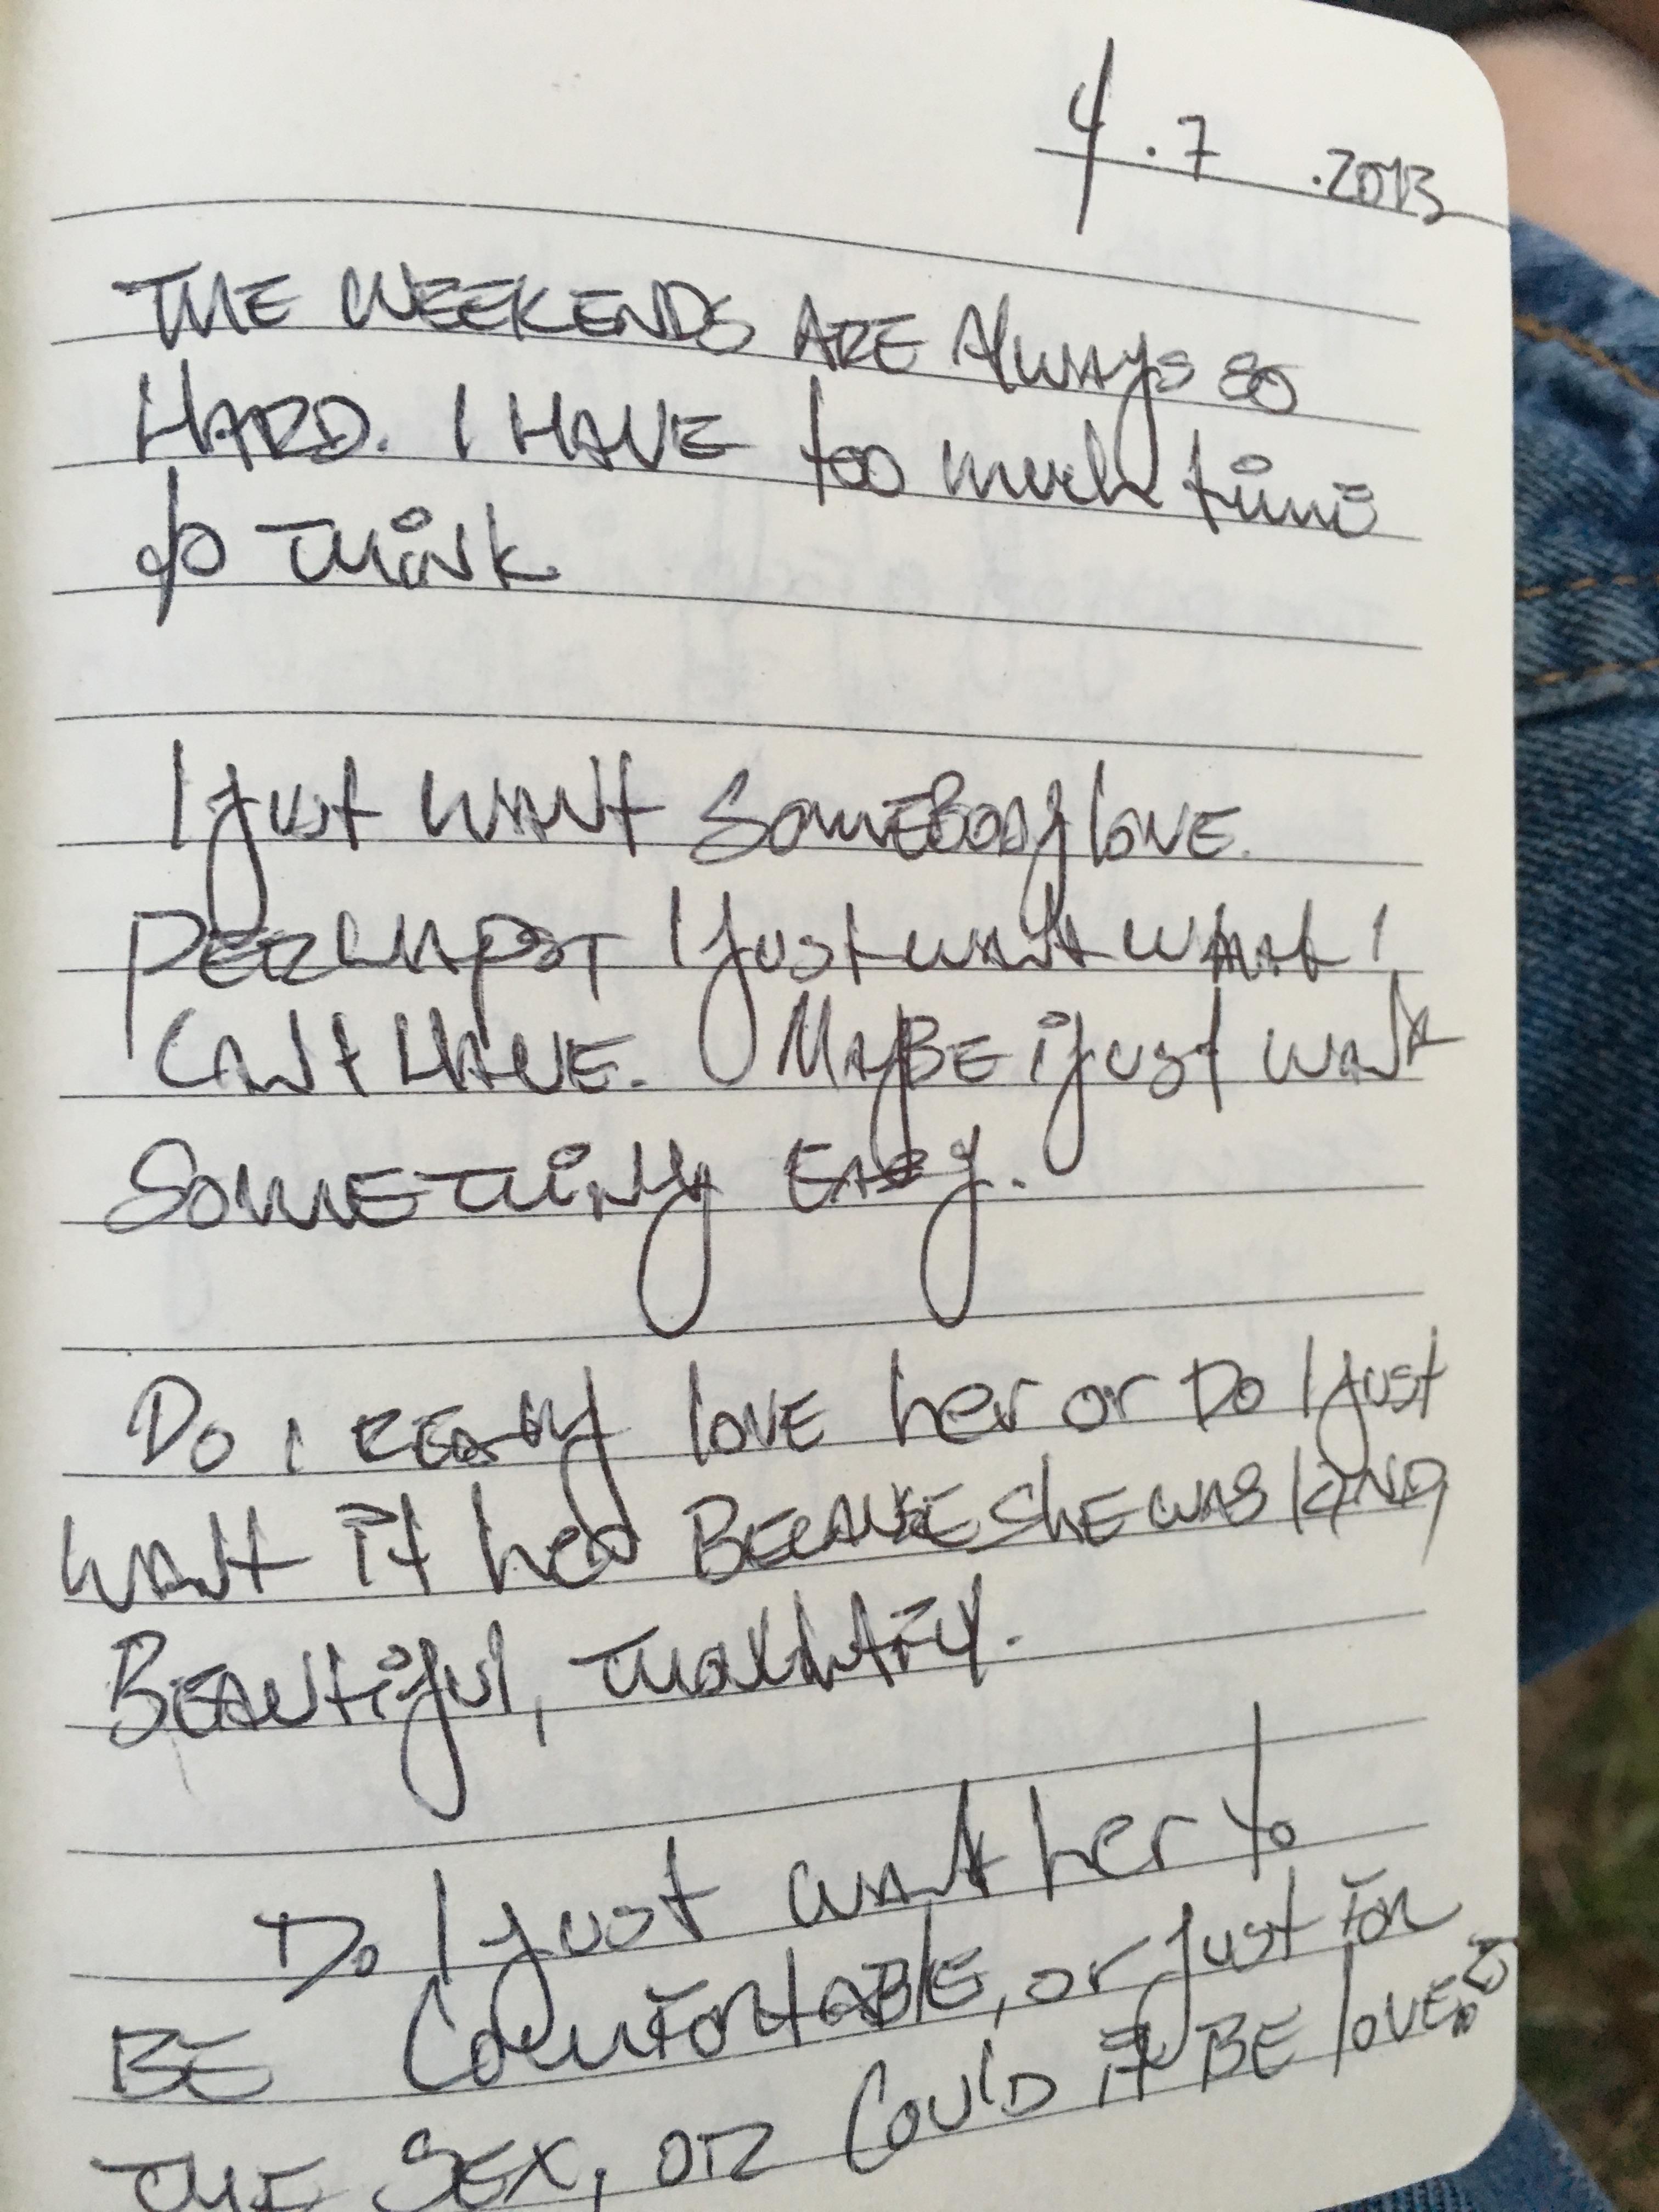 4.7.2013
THE WEEKENDS ARE Always so
HARD. I HAVE too much time
to THiNk
I just WANT SOMEBODY lOVE.
I just want what I
CAN't HAVE. MAyBE i just want
SOMETHiNg EASy.
Do i REally lOVE her or Do I just
WANt it BECAUSE ShE WAS KiND,
BEAUtiful,
Do I just want her to
BE COMFORTABLE, or just FOR
THE SEX, OR COUlD it BE lOVE?